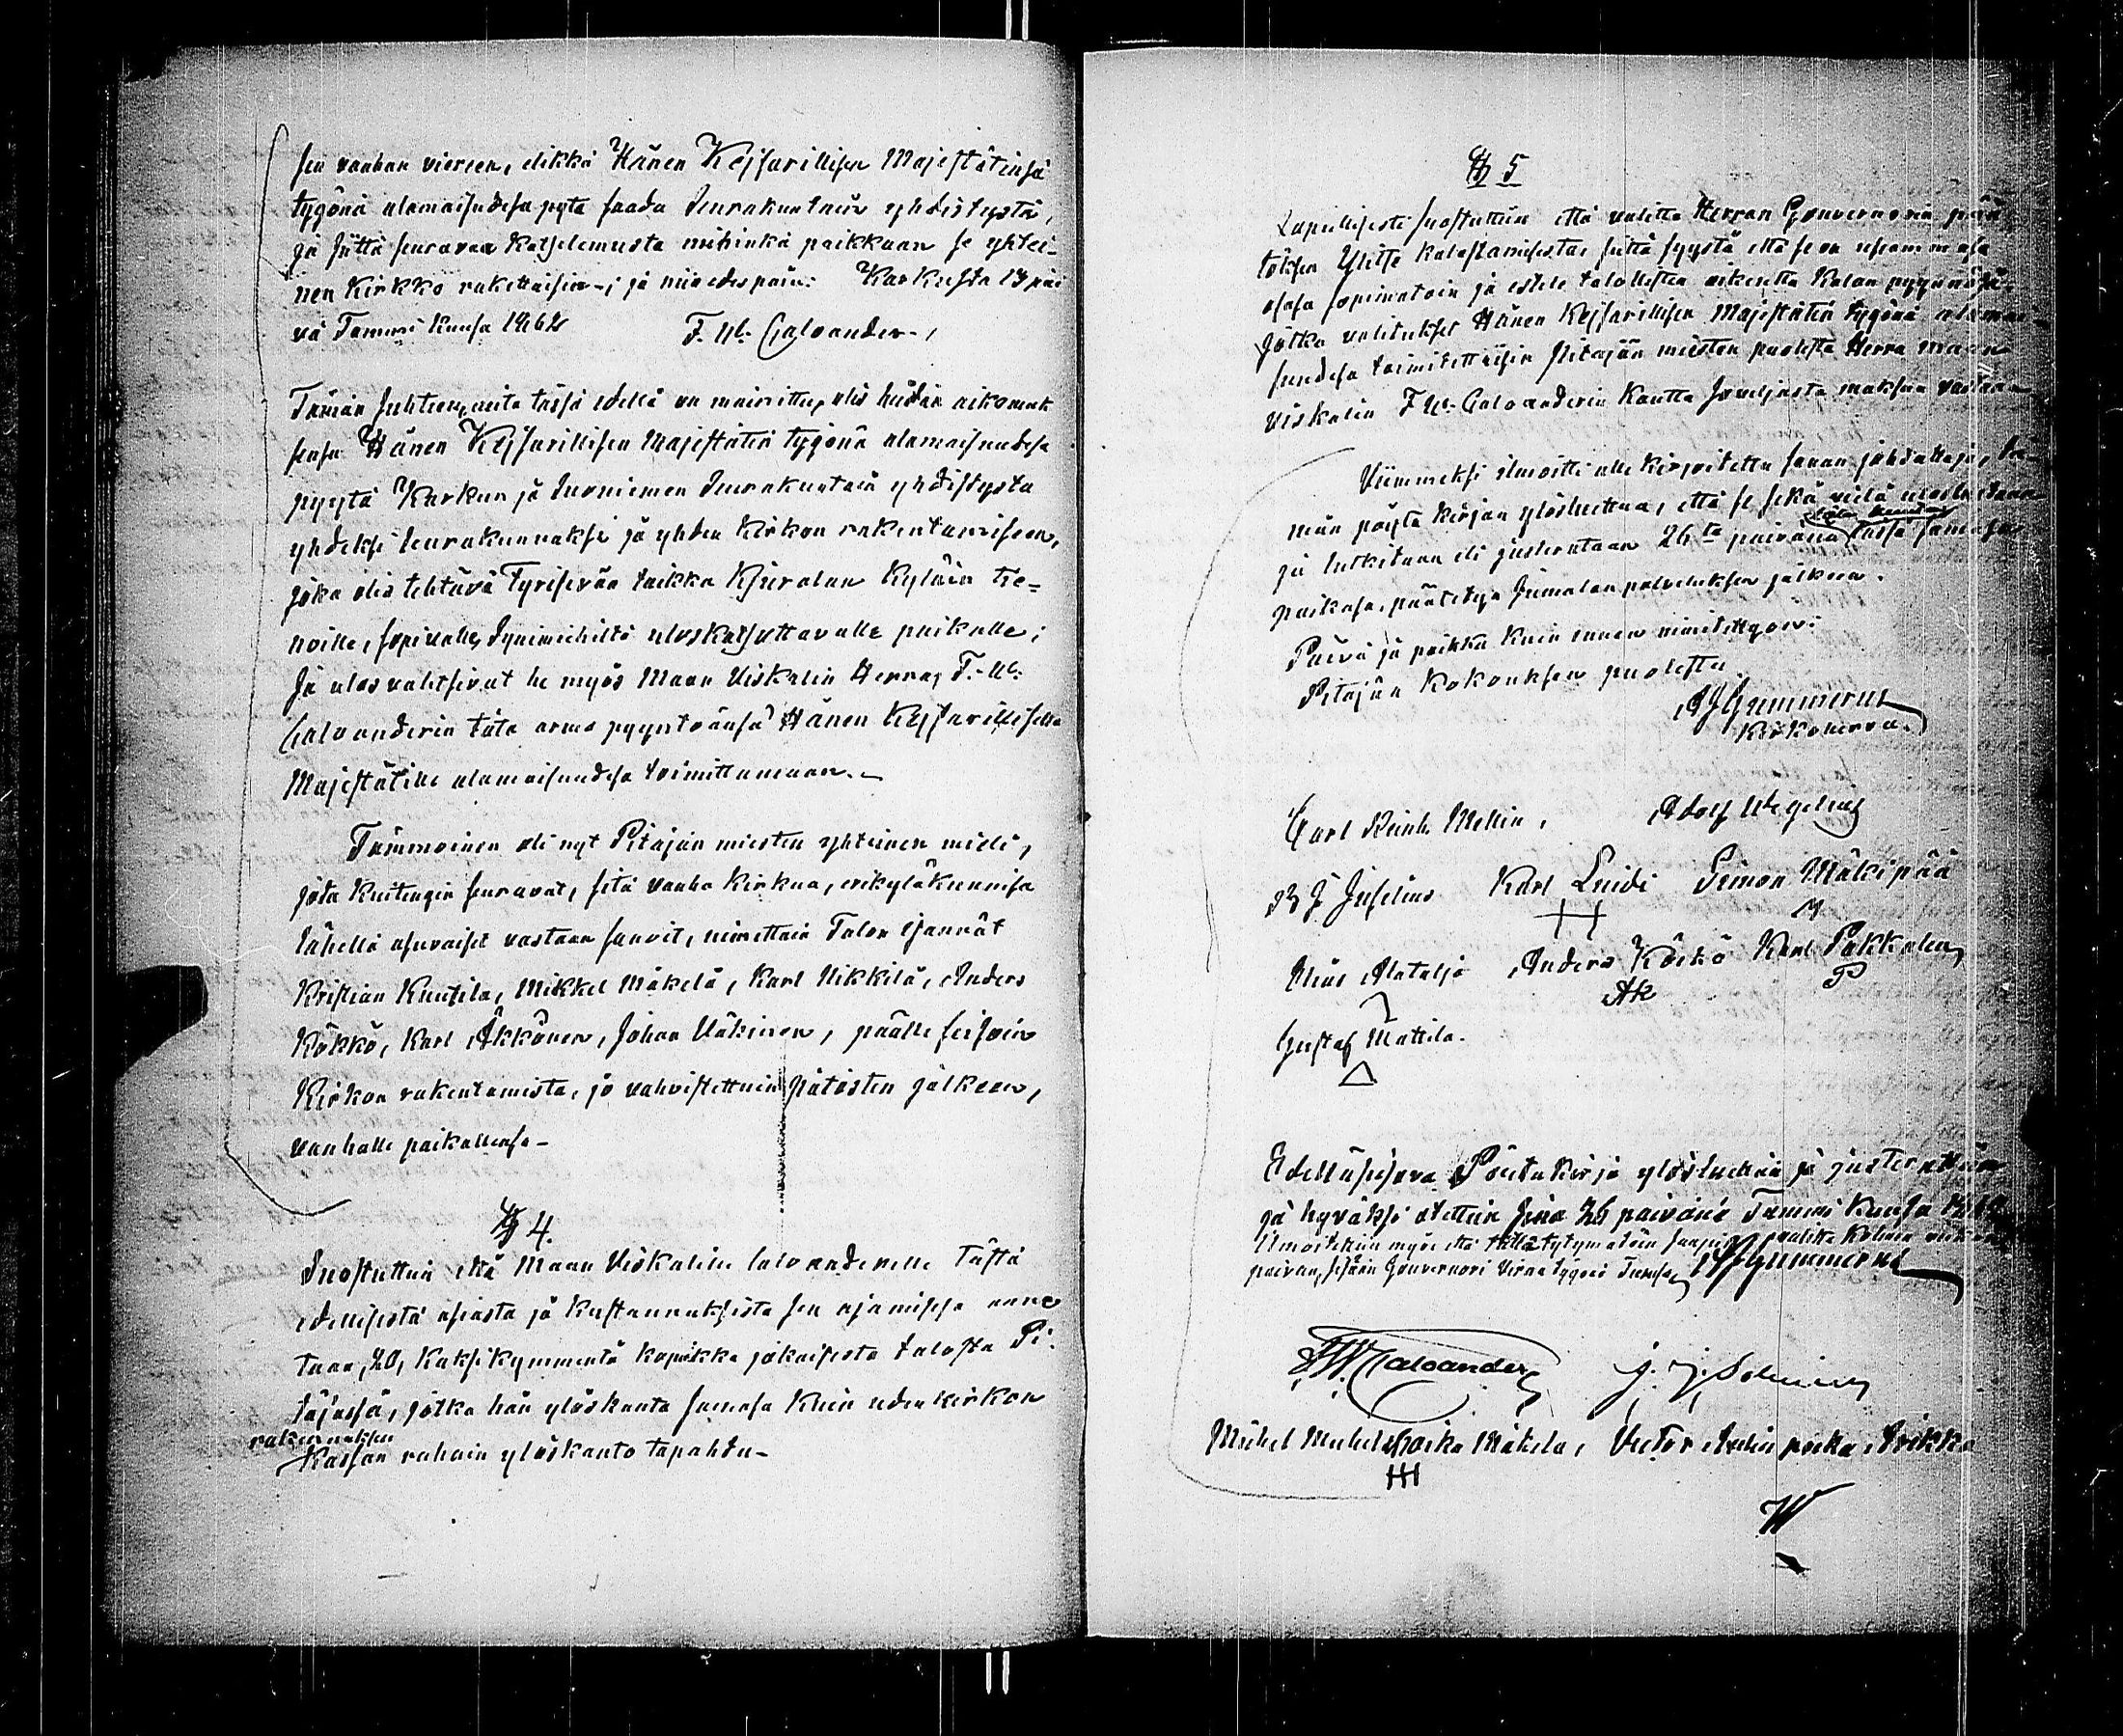 sen vanhan viereen, elikkä Hänen Kejsarillisen Majestätinsä
tygönä alamaisudesa pytä saada Seurakuntain yhdistystä,
ja sittä seuravaa katselemusta mihinkä paikkaan se yhtei-
nen Kirkko rakettaisin-; ja niin edespäin: Karkusta 13 päi
vä Tammi Kuusa 1862 F. W. Caloander.,
Tämän suhteen, mitä tässä edellä on mainittu, olis heidän aikomuk
sensa Hänen Kejsarillisen Majestätin tygönä alamaisudesa
pyytä Karkun ja Suoniemen Seurakuntain yhdistystä
yhdeksi seurakunnaksi ja yhden Kirkon rakentamiseen,
joka olis tehtävä Tyrisevän taikka Kiuralan Kyläin tie-
noille, sopivalle, Synimiehiltä uloskatsottavalle paikalle;
Ja ulosvalitsivat he myös Maan Viskalin Herra, F. W.
Caloanderin täta armo pyyntöänsä Hänen Kejsarilliselle
Majestätille alamaisuudesa toimittamaan.-
Tämmöinen oli nyt Pitäjän miesten yhteinen mieli,
jota kuitengin seuravat, sitä vanha Kirkua, erikyläkunnisa
lähellä asuvaiset vastaan sanoit, nimittäin Talon Isännät
Kristian Knutila, Mikkel Mäkelä, Karl Nikkilä, Anders
Kökkö, Karl Äkkönen, Johan Näkinen, päälle seisoin
Kirkon rakentamista, jo vahvistettuin Päätösten jälkeen,
vanhalle paikallensa-
§ 4.
Suostuttin että Maan Viskalille Caloanderille tästä
edellisestä asiasta ja kustannuksista sen ajamisesa anne
taan, 20, kaksi kymmentä kopeikka jokaisesta talosta Pi-
täjässä, jotka hän ylöskanta samasa kuin uden kirkon
rakennuksen
Kassan rahain ylöskanto tapahtu-
§ 5
suostuttiin että valitta Herran Gouvernörin pää
töksen ylitse kalastamisesta, siittä syystä että se on useammasa
osasa sopimatoin ja estele talollisten oikeutta Kalan pyynnösä,
Jotka valitukset Hänen Kejsarillisen Majestätin tygönä alamai-
suudesa toimitettaisin Pitäjän miesten puolesta Herra maan
Viskalin F. W. Caloanderin Kautta maksua vastaan
Viimmeksi ilmoitti alle kirjoitettu sanan johdattaja, tä-
män pöytä kirjan ylösluettua, että se sekä vielä
ja tutkitaan eli justerataan 26ta päivänä tässä samassa
paikasa, päätetyn Jumalan palveluksen jälkeen.
Päivä ja paikka kuin ennen nimitetty on:
Pitäjän Kokouksen puolesta
Gummerus
Kirkoherra.
Carl Reinh. Mellin, Adolf Wegelius
Karl Luidi Simon Mäkipää
Elias Alatalo Anders Kökkö Karl Pakkalen
AK P
Gustaf Mattila.
Edelläseisova Pöytäkirja ylösluettiin ja justerattiin
ja hyväksi otettiin sinä 26 päivänä Tammi Kuusa
Gummerus
F. W. Caloander
Michel Michelspoika Mäkelä, Victor poika
W